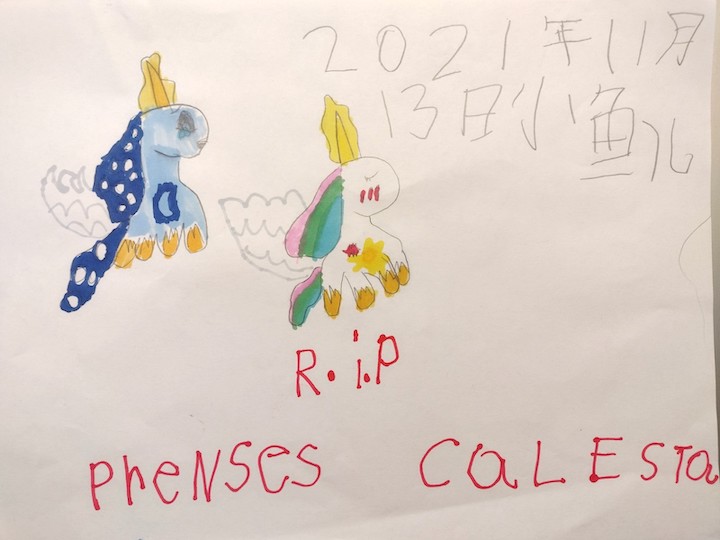 2021年11月
13日小鱼儿
R.i.P
PheNSes CaLESTa